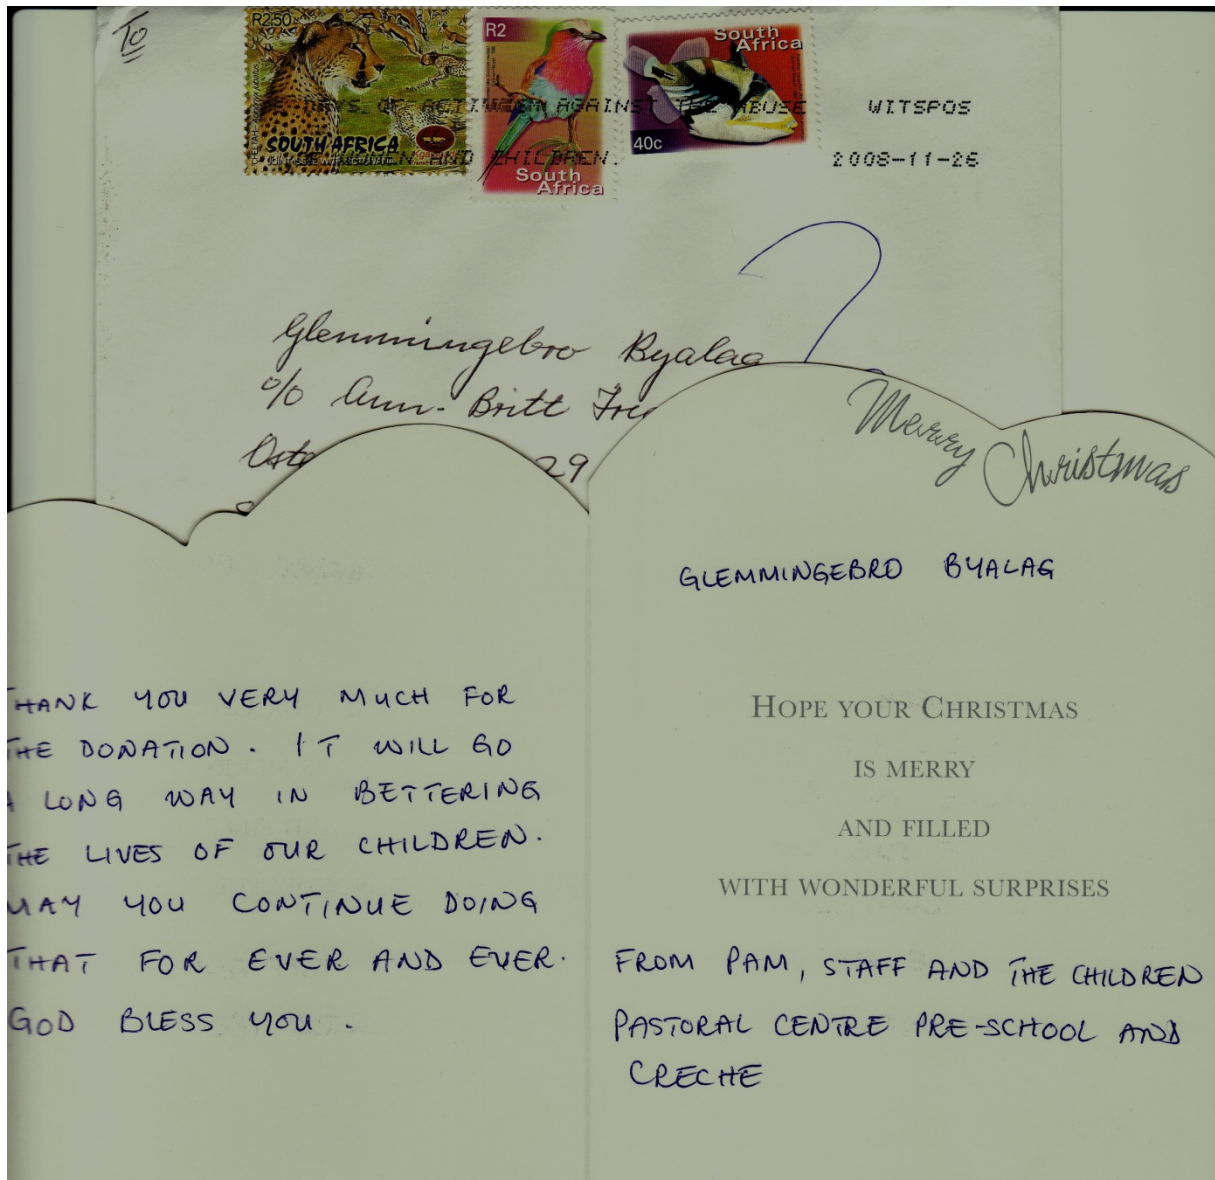 To
R2.50
SOUTH AFRICA
R2
South
Africa
South
Africa
40c
DAYS OF ACTIVISM AGAINST THE ABUSE
AND CHILDREN.
WITSPOS
2008-11-26
Glemmingebro Byalag
c/o Ann-Britt
29
Merry Christmas
GLEMMINGEBRO BYALAG
THANK YOU VERY MUCH FOR
THE DONATION. IT WILL GO
A LONG WAY IN BETTERING
THE LIVES OF OUR CHILDREN.
MAY YOU CONTINUE DOING
THAT FOR EVER AND EVER.
GOD BLESS YOU.
HOPE YOUR CHRISTMAS
IS MERRY
AND FILLED
WITH WONDERFUL SURPRISES
FROM PAM, STAFF AND THE CHILDREN
PASTORAL CENTRE PRE-SCHOOL AND
CRECHE